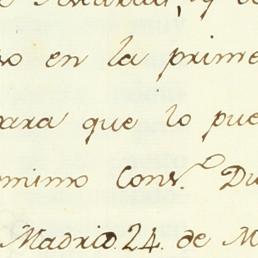 vo en la prime
para que lo pue
mimo Conv.º Du
Madrid. 24. de M